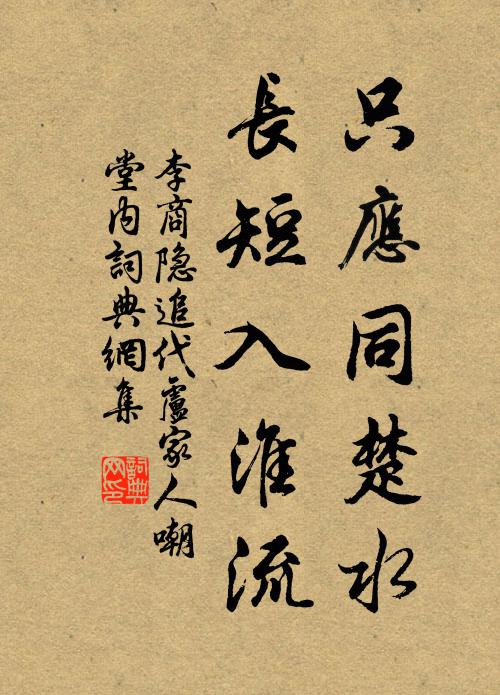 只應同楚水
長短入淮流
李商隐追代盧家人嘲
堂内詞典網集
詞典网印